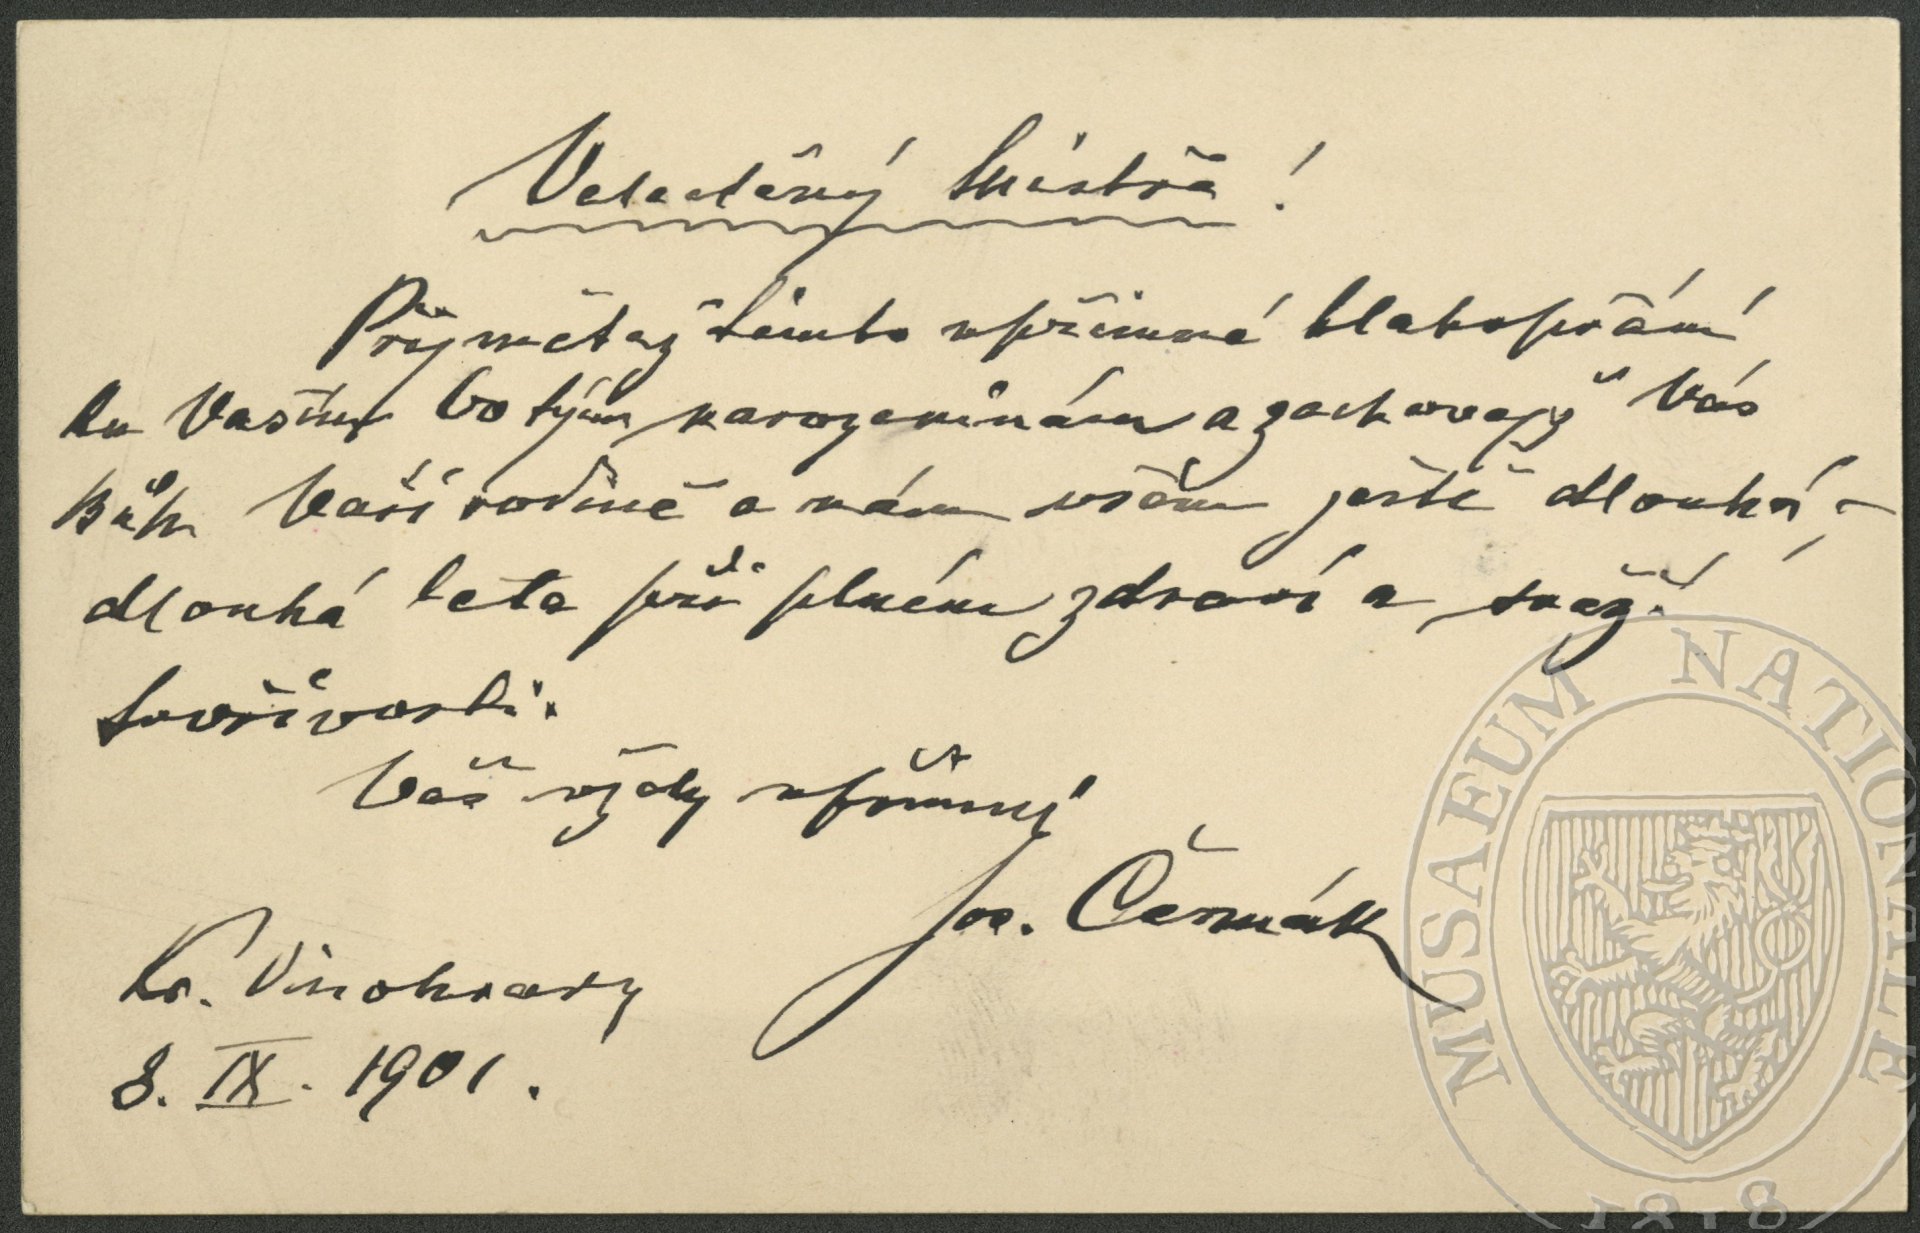 Velectěný Mistře!
Přijmětež tímto upřímné blahopřání
ku Vaším 60tým narozeninám a zachovejž Vás
Bůh Vaší rodině a nám všem ještě dlouhá,
dlouhá leta při plném zdraví a svěží
tvořivosti.
Váš vždy upřímný
Jos. Čermák
Kr. Vinohrady
8. IX. 1901.
MUSAEUM NATIONALE
1818